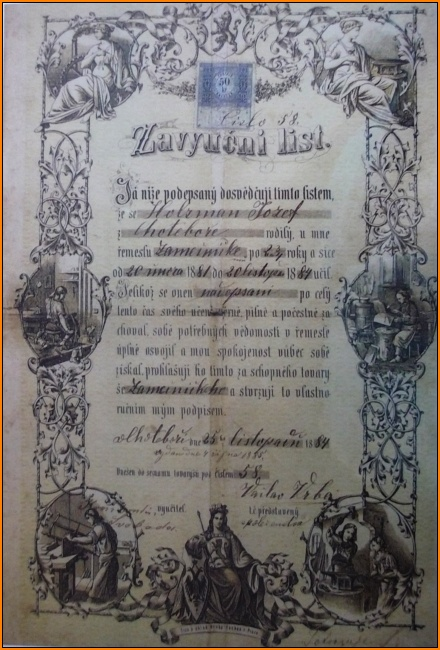 50
Číslo 58.
Zavyuční list.
Já níže podepsaný dosvědčuji tímto listem,
že se Holzman Jozef
z Chotěboře rodilý, u mne
řemeslu zámečnické po roky a sice
od 20 února 1881 do 20 listop. 1884 učil.
Jelikož se onen po celý
tento čas svého učení věrně, pilně a počestně za-
choval, sobě potřebných vědomostí v řemesle
úplně osvojil a mou spokojenost vůbec sobě
získal, prohlašuji ho tímto za schopného tovary-
še zámečnického a stvrzuji to vlastno-
ručním mým podpisem.
v Chotěboři dne 25. listopadu 1884
Vnešen do seznamu tovaryšů pod číslem 58.
Václav Vrba
vyučitel. představený